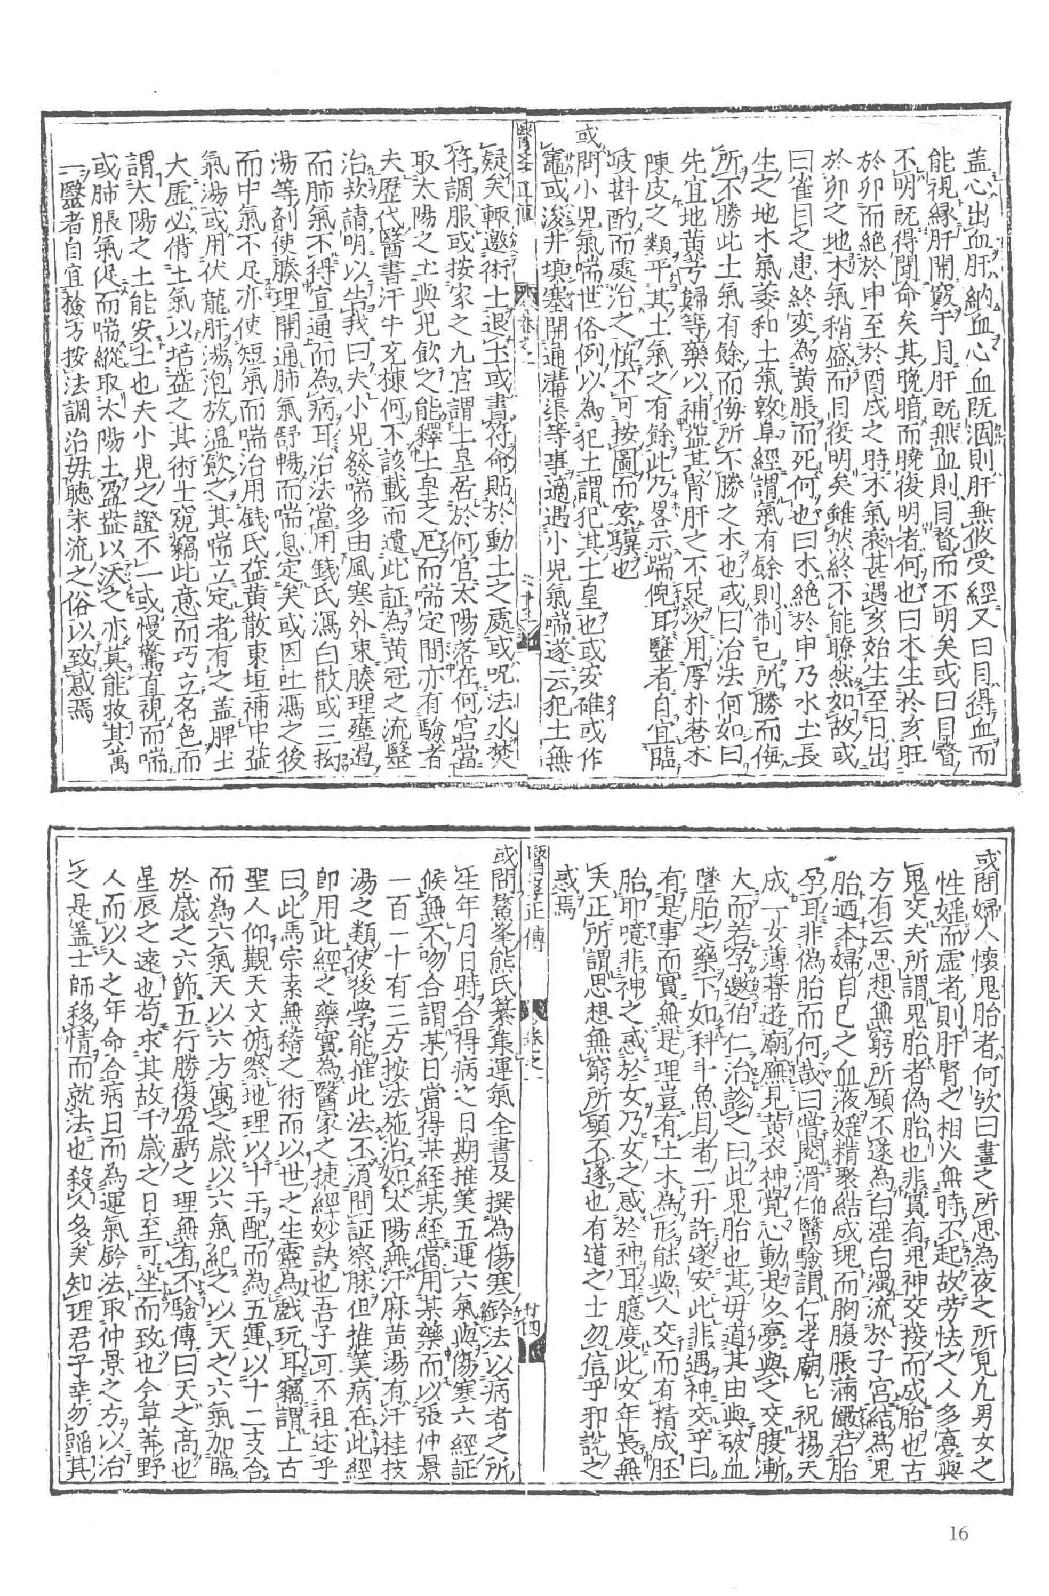 蓋心出血肝納血心血既涸則肝無攸受經又曰目得血而
能視縁肝開竅于目肝既無血則目瞀而不明矣或曰目瞀
不明既得聞命矣其晚暗而曉復明者何也曰木生於亥旺
於卯而絶於申至於酉戌之時木氣衰甚遇亥始生至日出
於卯之地木氣稍盛而目復明矣雖然終不能瞭然如故或
曰雀目之患終変為黄脹而死何也曰木絶於申乃水土長
生之地木氣萎和土氣敦阜經謂氣有餘則制己所勝而侮
所不勝此土氣有餘而侮所不勝之木也或曰治法何如曰
先宜地黄芎婦等藥以補益其腎肝之不足次用厚朴蒼木
陳皮之類平其土氣之有餘此乃畧示端倪耳毉者自宜臨
岐斟酌而處治之慎不可按圖而索驥也
或問小児氣喘世俗例以為犯土謂犯其土皇也或安碓或作
竈或浚井填塞開通溝渠等事適遇小児氣喘遂云犯土無
醫学正傳
卷之一
疑矣輙邀術士退土或書符命貼於動土之處或呪法水焚
符調服或按家之九宫謂土皇居於何宫太陽落在何宫當
取太陽之土與児飲之能釋土皇之厄而喘定間亦有驗者
夫歴代醫書汗牛充棟何不該載而遺此証為黄冠之流毉
治欤請明以告我曰夫小児發喘多由風寒外束腠理壅遏
而肺氣不得宣通而為病耳治法當用錢氏瀉白散或三拗
湯等剤使腠理開通肺氣舒暢而喘息定矣或因吐瀉之後
而中氣不足亦使短氣而喘治用銭氏益黄散東垣補中益
氣湯或用伏龍肝湯泡放温飲之其喘立定者有之盖脾土
大虚必借土氣以培益之其術士窺竊此意而巧立名色而
謂太陽之土能安土也夫小児之證不一或慢驚直視而喘
或肺脹氣促而喘縱取太陽土盈益以沃之亦莫能救其萬
一毉者自宜撿方按法調治毋聽末流之俗以致惑焉
或問婦人懷鬼胎者何欤曰晝之所思為夜之所見凡男女之
性婬而虚者則肝腎之相火無時不起故劳怯之人多夣與
鬼交夫所謂鬼胎者偽胎也非實有鬼神交接而成胎也古
方有云思想無窮所願不遂為白淫白濁流於子宫結為鬼
胎迺本婦自已之血液婬精聚結成塊而胸腹脹滿儼若胎
孕耳非偽胎而何哉曰嘗閲滑伯仁醫驗謂仁孝廟廟祝揚天
成一女薄暮遊廟廡見黄衣神覺心動是夕夣與之交腹漸
大而若孕邀伯仁治診之曰此鬼胎也其母道其由與破血
墜胎之藥下如科斗魚目者二升許遂安此非遇神交乎曰
有是事而實無是理豈有土木為形能與人交而有精成胚
胎耶噫非神之惑於女乃女之惑於神耳臆度此女年長無
夫正所謂思想無窮所願不遂也有道之士勿信乎邪説之
惑焉
醫学正傳
卷之一
廿四
或問鰲峯熊氏纂集運氣全書及撰為傷寒鈐法以病者之所
生年月日時合得病之日期推筭五運六氣與傷寒六經証
候無不吻合謂某日當得某經某經當用某藥而以張仲景
一百一十有三方按法施治如太陽無汗麻黄湯有汗桂技
湯之類使後學能推此法不須問証察脉但推筭病在此經
即用此經之藥實為醫家之捷經妙訣也吾子可不祖述乎
曰此馬宗素無稽之術而以世之生靈為戲玩耳竊謂上古
聖人仰觀天文俯察地理以十干配而為五運以十二支合
而為六氣天以六方寓之歳以六氣紀之以天之六氣加臨
於歳之六節五行勝復盈虧之理無有不驗傳曰天之髙也
星辰之遠也苟求其故千歳之日至可坐而致也今草莽野
人而以人之年命合病日而為運氣鈐法取仲景之方以治
之是盖士師移情而就法也殺人多矣知理君子幸勿蹈其
16